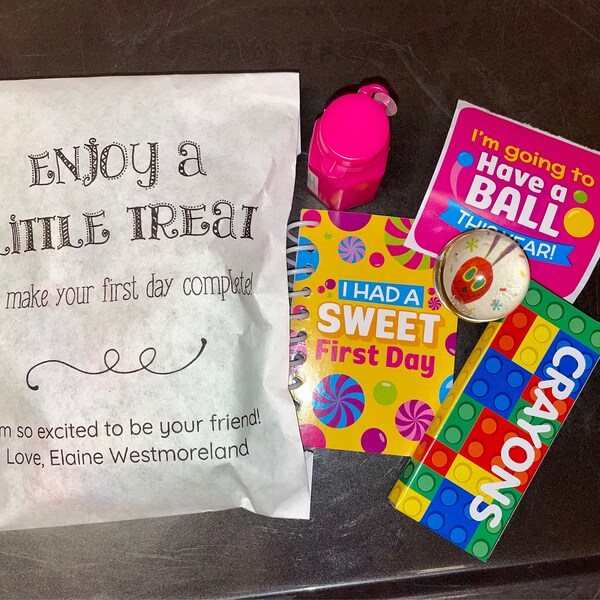 ENJOY a
LITTLE TREAT
make your first day complete!
m so excited to be your friend!
Love, Elaine Westmoreland
I'm going to
Have a
BALL
THIS YEAR!
I HAD A
SWEET
First Day
CRAYONS